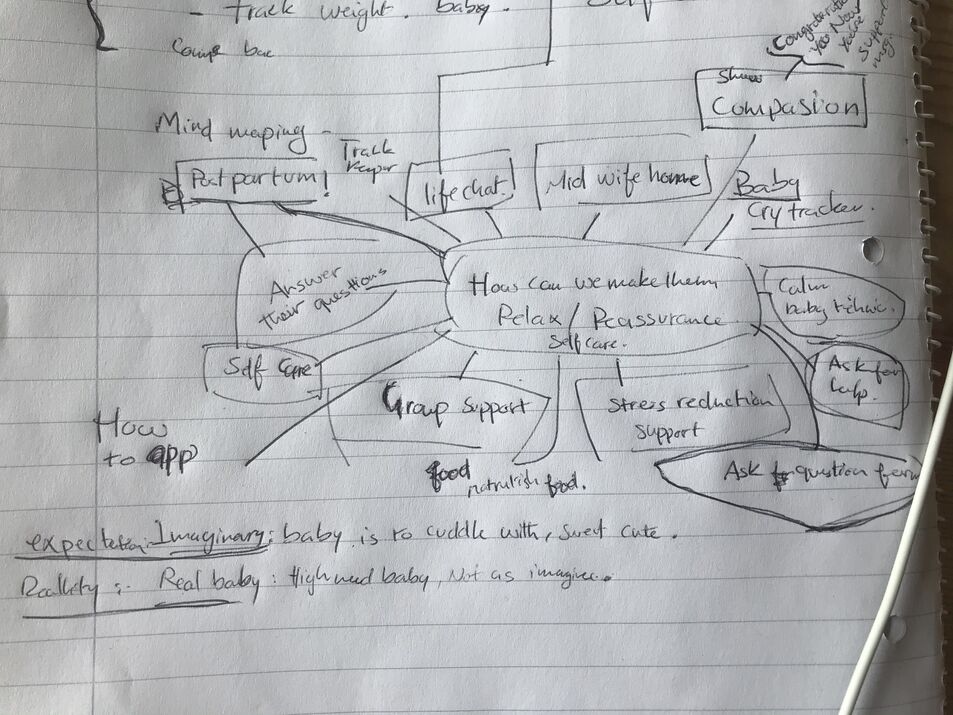 - Track weight. baby.
Self
Mind maping -
Postpartum!
Track
keeper
life chat!
Mid wife home
Show
Compasion
You Now
You're
Support
Baby
Cry tracker.
Answer
their questions
How can we make them
Relax / Reassurance
Self care.
Calm
baby
Self care
Group support
Stress reduction
support
Ask for
help.
How
to app
food
food.
Ask question
expectation: Imaginary: baby is to cuddle with, sweet cute.
Reality :- Real baby: High need baby, Not as imagine.